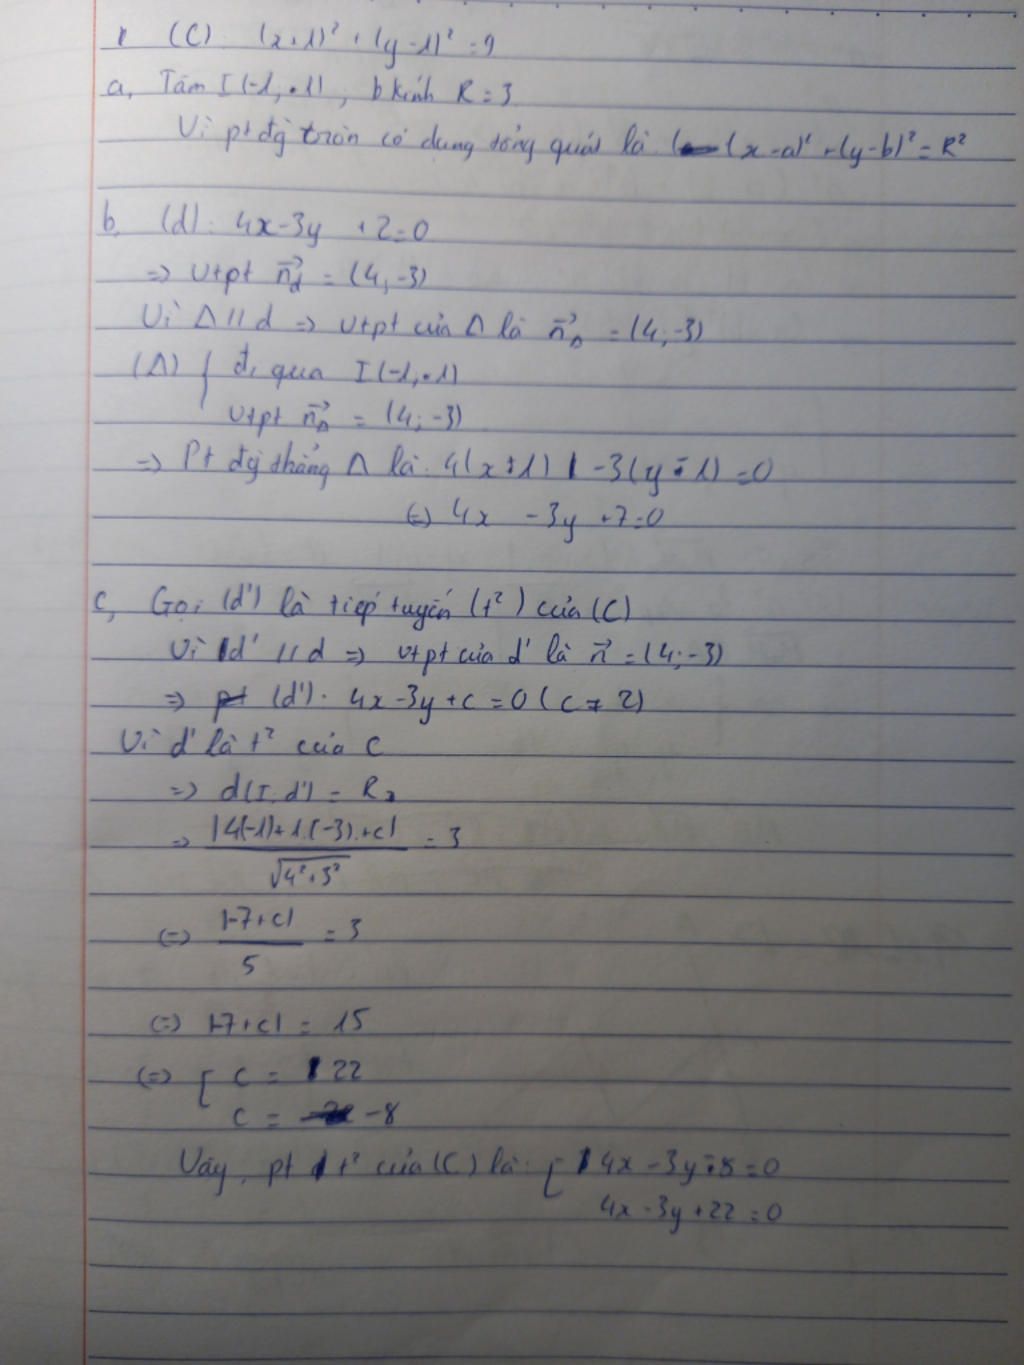 1 (C): (x+1)² + (y-1)² = 9
a, Tâm I(-1, 1), b kính R = 3
Vì pt đg tròn có dạng tổng quát là (x-a)² + (y-b)² = R²
b, (d): 4x-3y +2=0
=> vtpt n⃗d = (4,-3)
Vì Δ // d => vtpt của Δ là n⃗Δ = (4;-3)
(Δ) { đi qua I(-1, 1)
vtpt n⃗Δ = (4;-3)
=> Pt đg thẳng Δ là: 4(x+1) -3(y-1) =0
(=) 4x -3y +7=0
c, Gọi (d') là tiếp tuyến (t²) của (C)
Vì d' // d => vtpt của d' là n⃗ = (4;-3)
=> (d'): 4x-3y+c =0 (c ≠ 2)
Vì d' là t² của C
=> d(I, d') = R
=> |4(-1)+1.(-3)+c| / √4²+3² = 3
(=) |-7+c| / 5 = 3
(=) |-7+c| = 15
(=) [ c = 22
c = -8
Vậy, pt t² của (C) là: [ 4x -3y -8=0
4x-3y+22=0